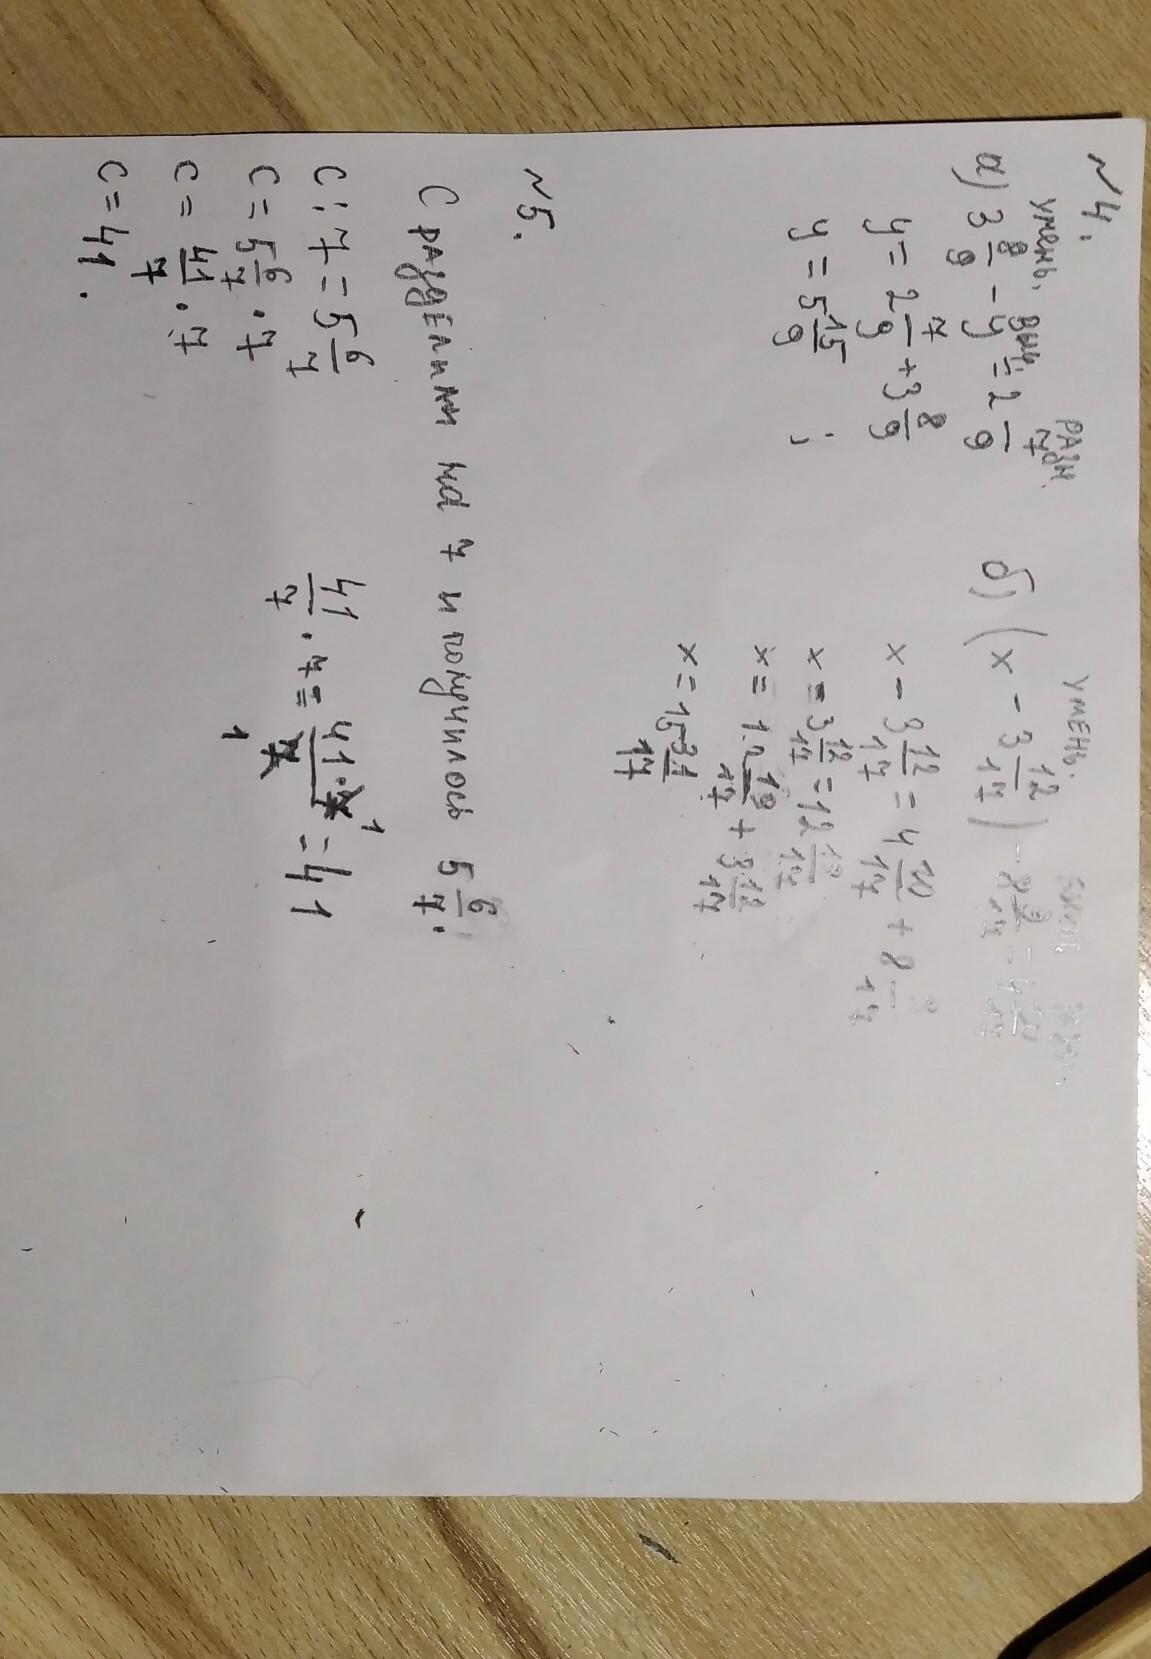 №4.
умень. выч. разн.
а) 3 8/9 - y = 2 7/9
y = 2 7/9 + 3 8/9
y = 5 15/9 ;
умень.
б) (x - 3 12/17) - 8 /17 = 4 /17
x - 3 12/17 = 4 10/17 + 8 /17
x - 3 12/17 = 12 /17
x = 12 /17 + 3 12/17
x = 15 31/17
№5.
С разделили на 7 и получилось 5 6/7.
C : 7 = 5 6/7
C = 5 6/7 · 7
C = 41/7 · 7
C = 41.
41/7 · 7 = 41 · 7 1/7 1 = 41